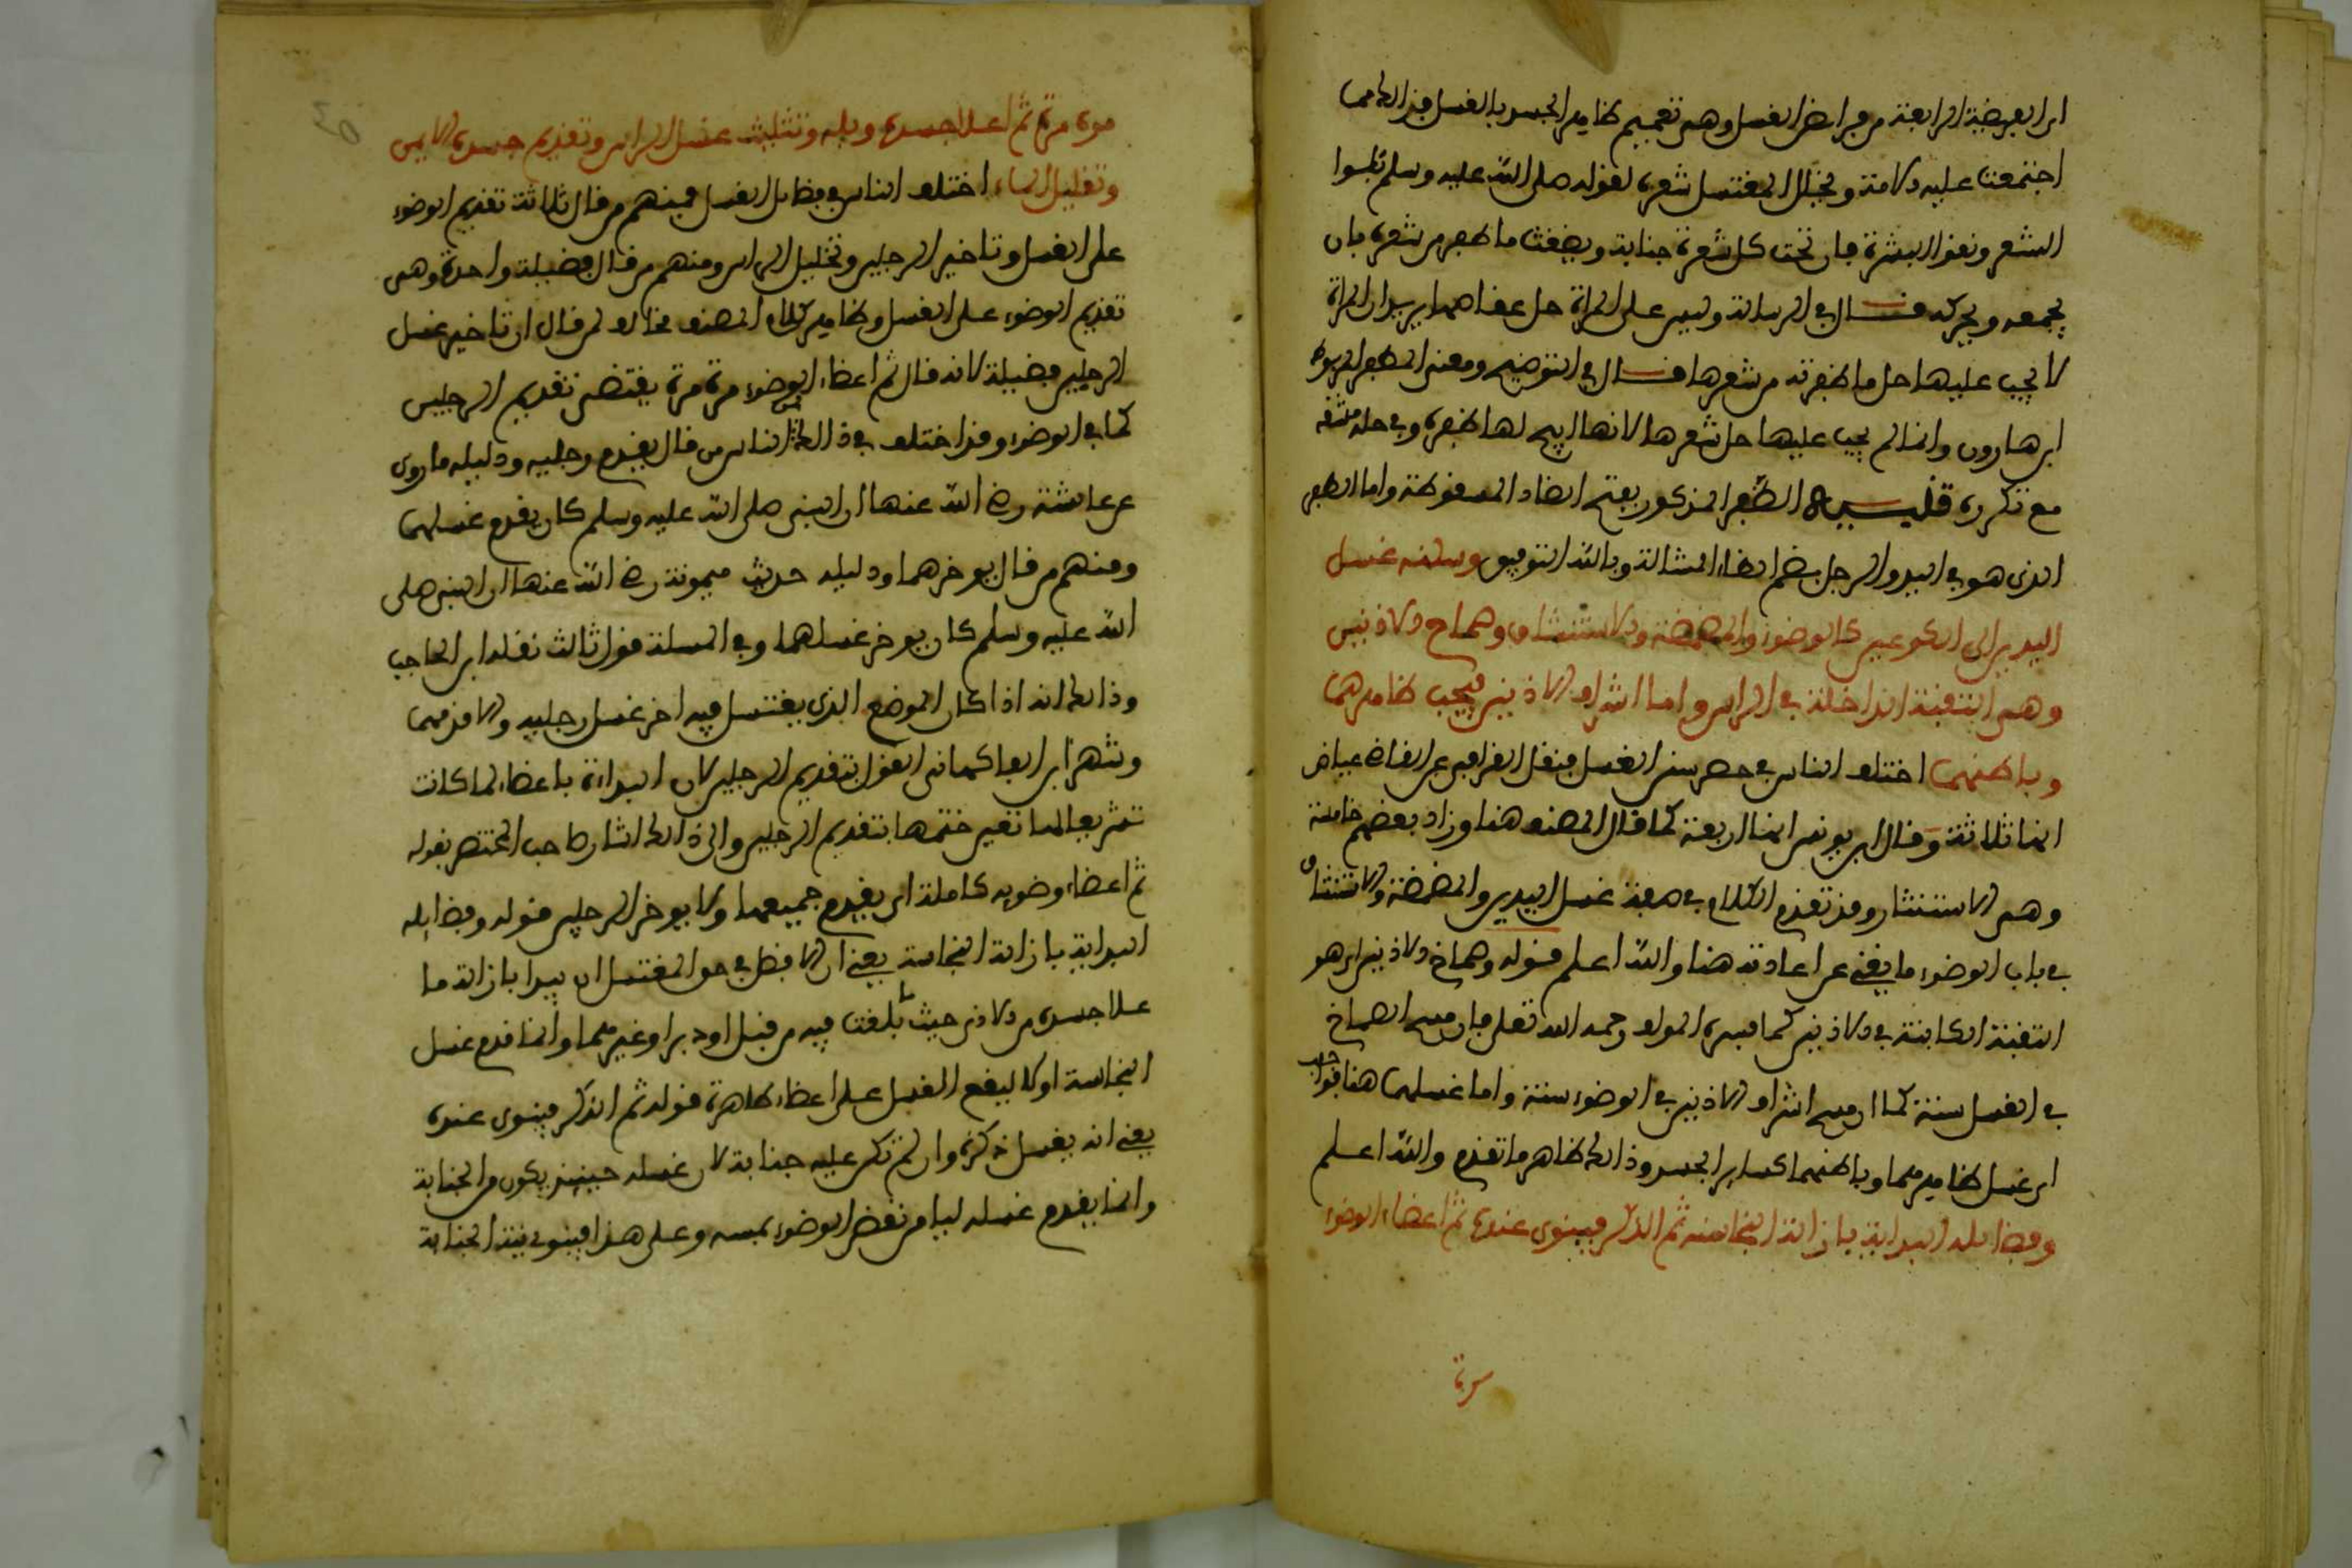 اي الفريضة الرابعة من فرائض الغسل وهي تعميم ظاهر الجسد بالغسل فذلك مما
اجتمعت عليه الامة ويخلل المغتسل شعره لقوله صلى الله عليه وسلم بلوا
الشعر ونقوا البشرة فان تحت كل شعرة جنابة ويضغث ما ظفر من شعره بان
يجمعه ويحركه قال في الرسالة وليس على المراة حل عقاصها يريد ان المراة
لا يجب عليها حل ما ظفرته من شعرها قال في التوضيح ومعنى الظفر المربوط
ابن هارون وانما لم يجب عليها حل شعرها لانها ابيح لها ظفره وفي حله مشقة
مع تكرره تنبيه الظفر المذكور بفتح الضاد المسقوطة واما الظفر
الذي هو في اليد والرجل بضم الظاء المشالة وبالله التوفيق وسننه غسل
اليدين الى الكوعين كالوضوء والمضمضة والاستنشاق وصماخ الاذنين
وهي الثقبة الداخلة في الراس واما اشراف الاذنين فيجب ظاهرهما
وباطنهما اختلف الناس في حصر سنن الغسل فنقل القرافي عن القاضي عياض
انها ثلاثة وقال ابن يونس انها اربعة كما قال المصنف هنا وزاد بعضهم خامسة
وهي الاستنثار وقد تقدم الكلام في صفة غسل اليدين والمضمضة والاستنشاق
في باب الوضوء ما يغني عن اعادته هنا والله اعلم قوله وصماخ الاذنين اي هو
الثقبة الكاينة في الاذنين كما فسره المولف رحمه الله تعلى فان مسح الصماخ
في الغسل سنة كما ان مسح اشراف الاذنين في الوضوء سنة واما غسلهما هنا فواجب
اي غسل ظاهرهما وباطنهما كساير الجسد وذلك ظاهر ما تقدم والله اعلم
وفضائله البداية بازالة النجاسة ثم الذكر فينوي عنده ثم اعضاء الوضوء
مرة
مرة مرة ثم اعلا جسده وبله وتثليث غسل الراس وتقديم جسده الايمن
وتقليل الماء اختلف الناس في فضائل الغسل فمنهم من قال ثلاثة تقديم الوضوء
على الغسل وتاخير الرجلين وتخليل الراس ومنهم من قال فضيلة واحدة وهي
تقديم الوضوء على الغسل وظاهر كلام المصنف مخالف لمن قال ان تاخير غسل
الرجلين فضيلة لانه قال ثم اعضاء الوضوء مرة مرة يقتضي تقديم الرجلين
كما في الوضوء وقد اختلف في ذلك الناس من قال يقدم رجليه ودليله ما روي
عن عائشة رضي الله عنها ان النبي صلى الله عليه وسلم كان يقدم غسلهما
ومنهم من قال يوخرهما ودليله حديث ميمونة رضي الله عنها ان النبي صلى
الله عليه وسلم كان يوخر غسلهما وفي المسلة قول ثالث نقله ابن الحاجب
وذلك انه اذا كان الموضع الذي يغتسل فيه اخر غسل رجليه والا قدمهما
وشهر ابن الفاكهاني القول بتقديم الرجلين لان البداءة باعضاء لما كانت
تشريفا لها تعين ختمها بتقديم الرجلين والى ذلك اشار صاحب المختصر بقوله
ثم اعضاء وضويه كاملة اي يقدم جميعها ولا يوخر الرجلين قوله وفضايله
البداية بازالة النجاسة يعني ان الافضل في حق المغتسل ان يبدا بازالة ما
علا جسده من الاذى حيث ما بلغت فيه من قبل او دبر او غيرهما وانما قدم غسل
النجاسة اولا ليقع الغسل على اعضاء طاهرة قوله ثم الذكر فينوي عنده
يعني انه يغسل ذكره وان لم تكن عليه جنابة لان غسله حينئذ يكون من الجنابة
وانما يقدم غسله ليامن نقض الوضوء بمسه وعلى هذا فينوي نية الجنابة